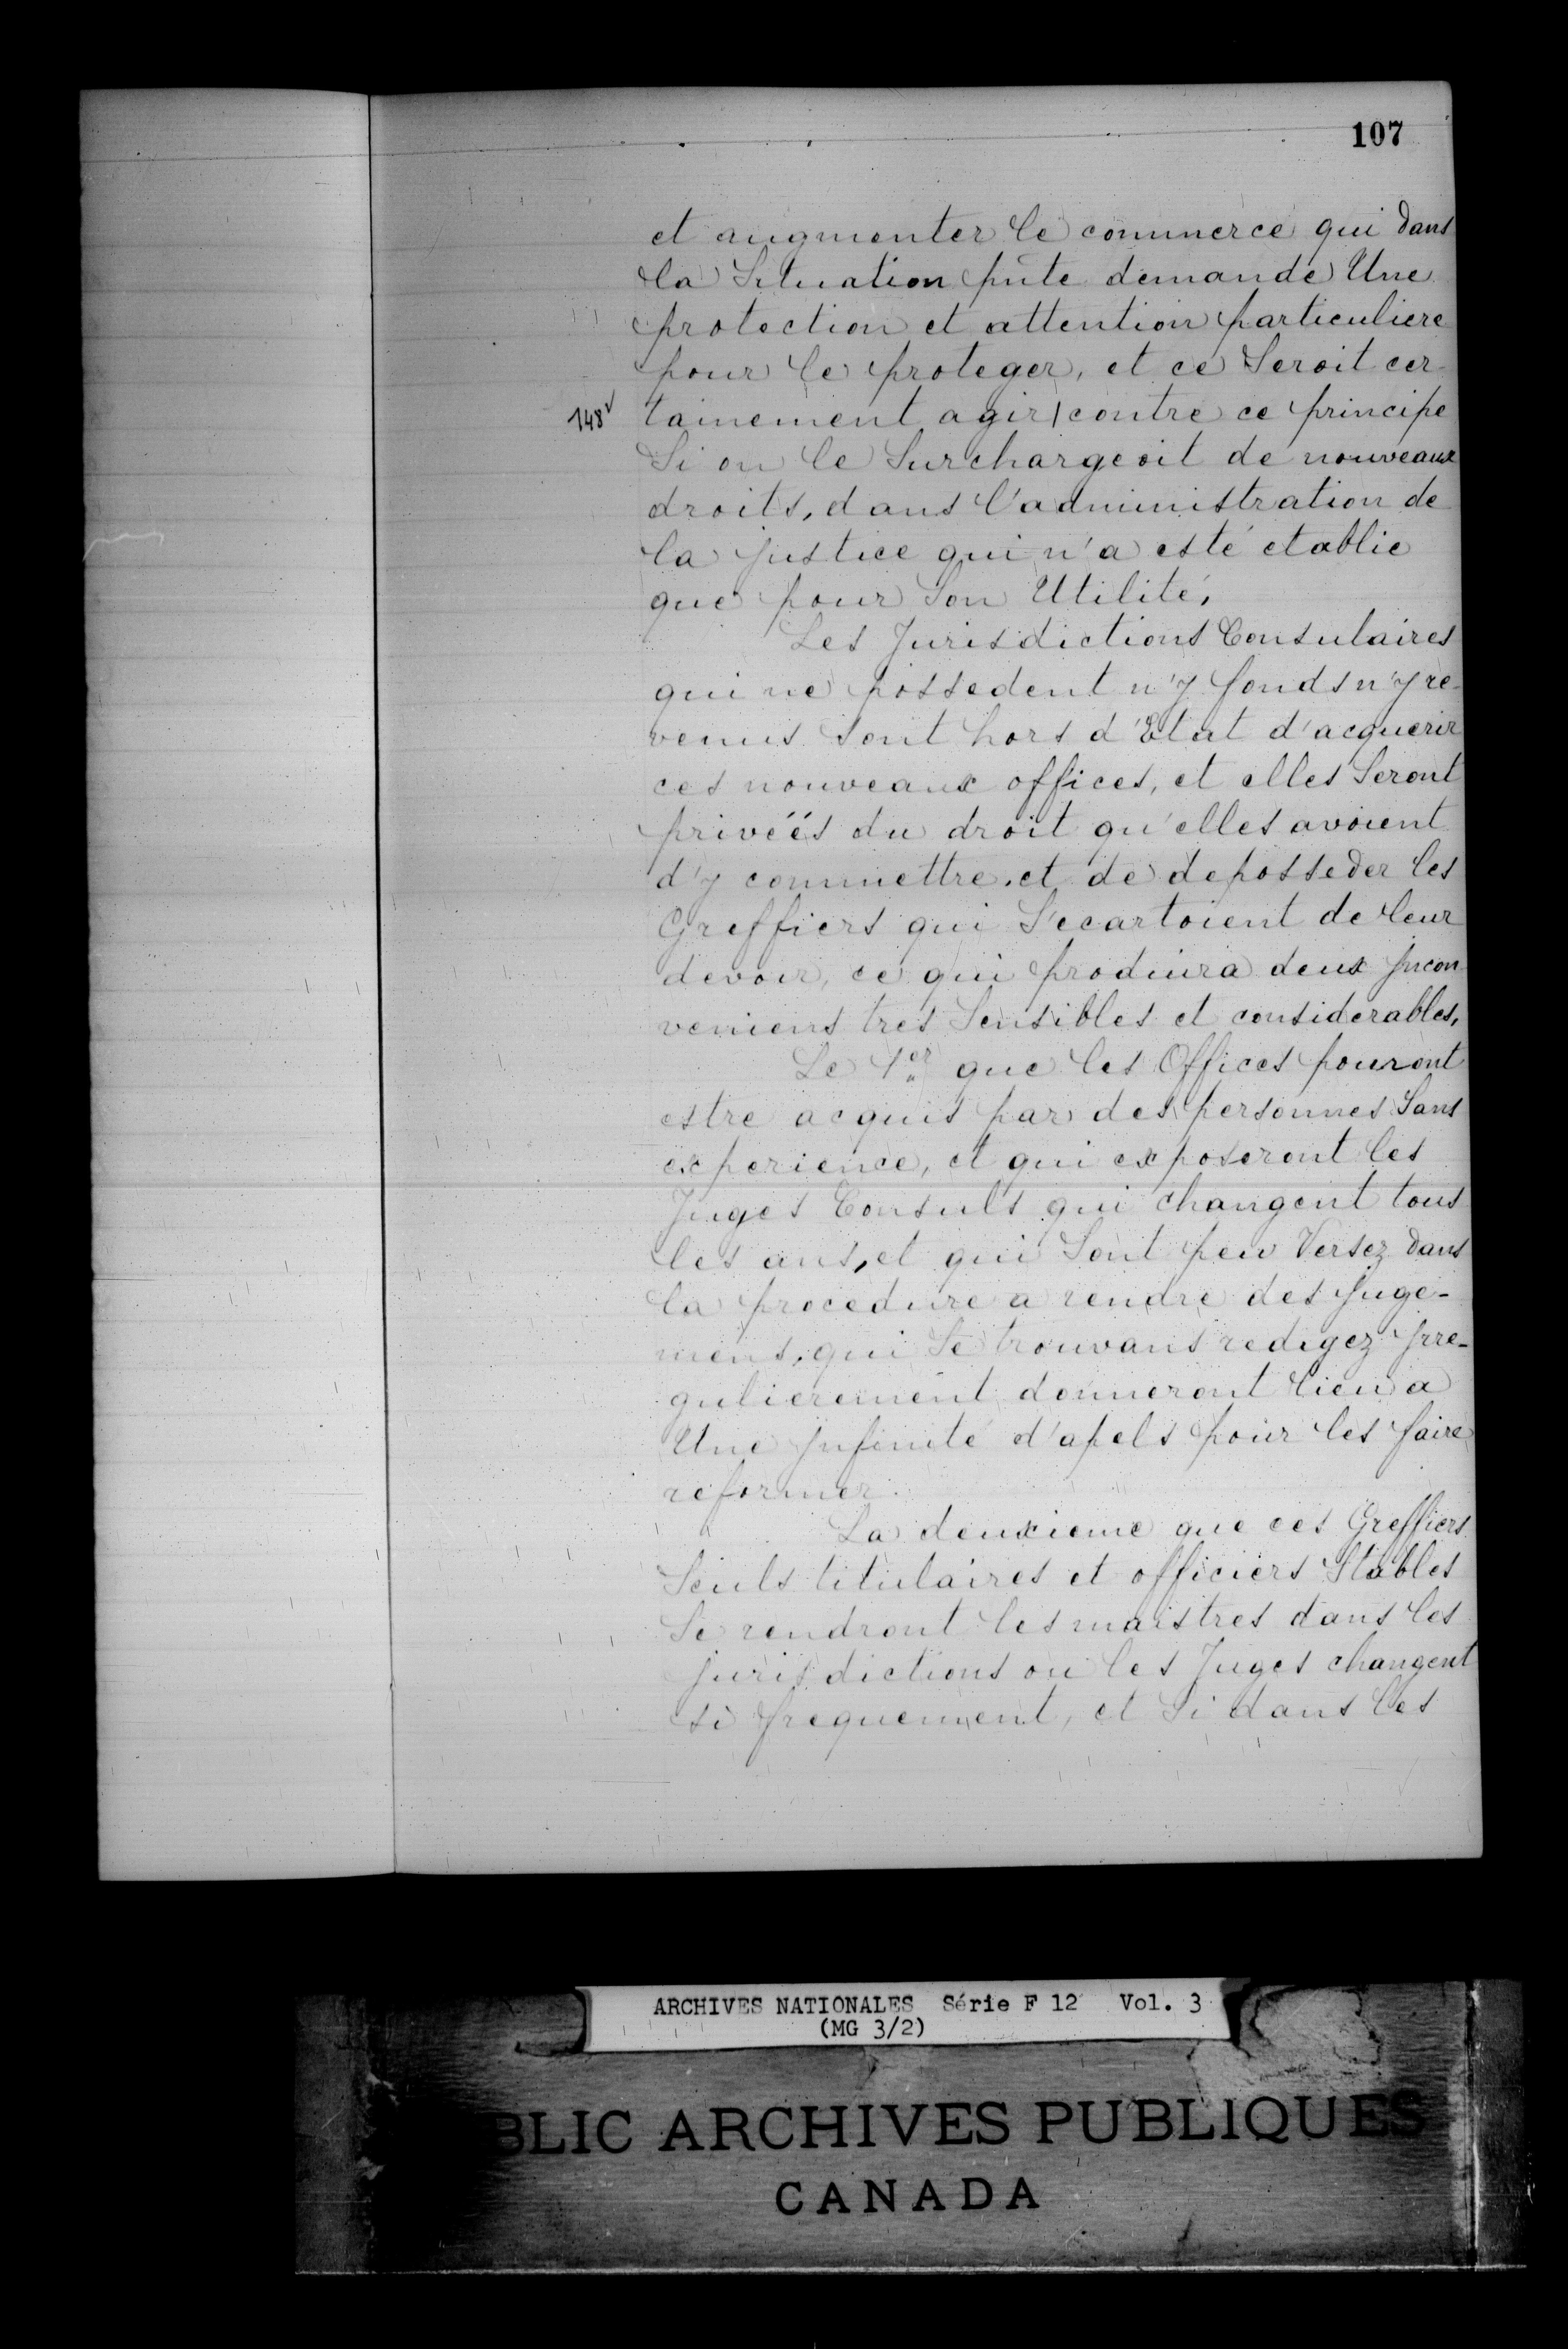 107
et augmenter le commerce qui dans
la Situation pñte demande Une
protection et attention particuliere
pour le proteger, et ce Seroit cer-
148v tainement agir | contre ce principe
Si on le Surchargeoit de nouveaux
droits, dans l'administration de
la justice qui n'a esté etablie
que pour Son Utilité,
Les Jurisdictions Consulaires
qui ne possedent n'y fonds n'y re-
venus Sont hors d'Etat d'acquerir
ces nouveaux offices, et elles Seront
privéés du droit qu'elles avoient
d'y commettre, et de deposseder les
Greffiers qui S'ecartoient de leur
devoir, ce qui produira deux Jncon-
veniens tres Sensibles et considerables,
Le 1er que les Offices pouront
estre acquis par des personnes Sans
experience, et qui exposeront les
Juges Consuls qui changent tous
les ans, et qui Sont peu Versez dans
la procedure a rendre des Juge-
mens, qui Se trouvans redigez Jrre-
gulierement donneront lieu a
Une Jnfinité d'apels pour les faire
reformer.
La deuxieme que ces Greffiers
Seuls titulaires et officiers Stables
Se rendront les maistres dans les
Jurisdictions ou les Juges changent
si frequement, et Si dans les
ARCHIVES NATIONALES Série F 12 Vol. 3
(MG 3/2)
BLIC ARCHIVES PUBLIQUES
CANADA